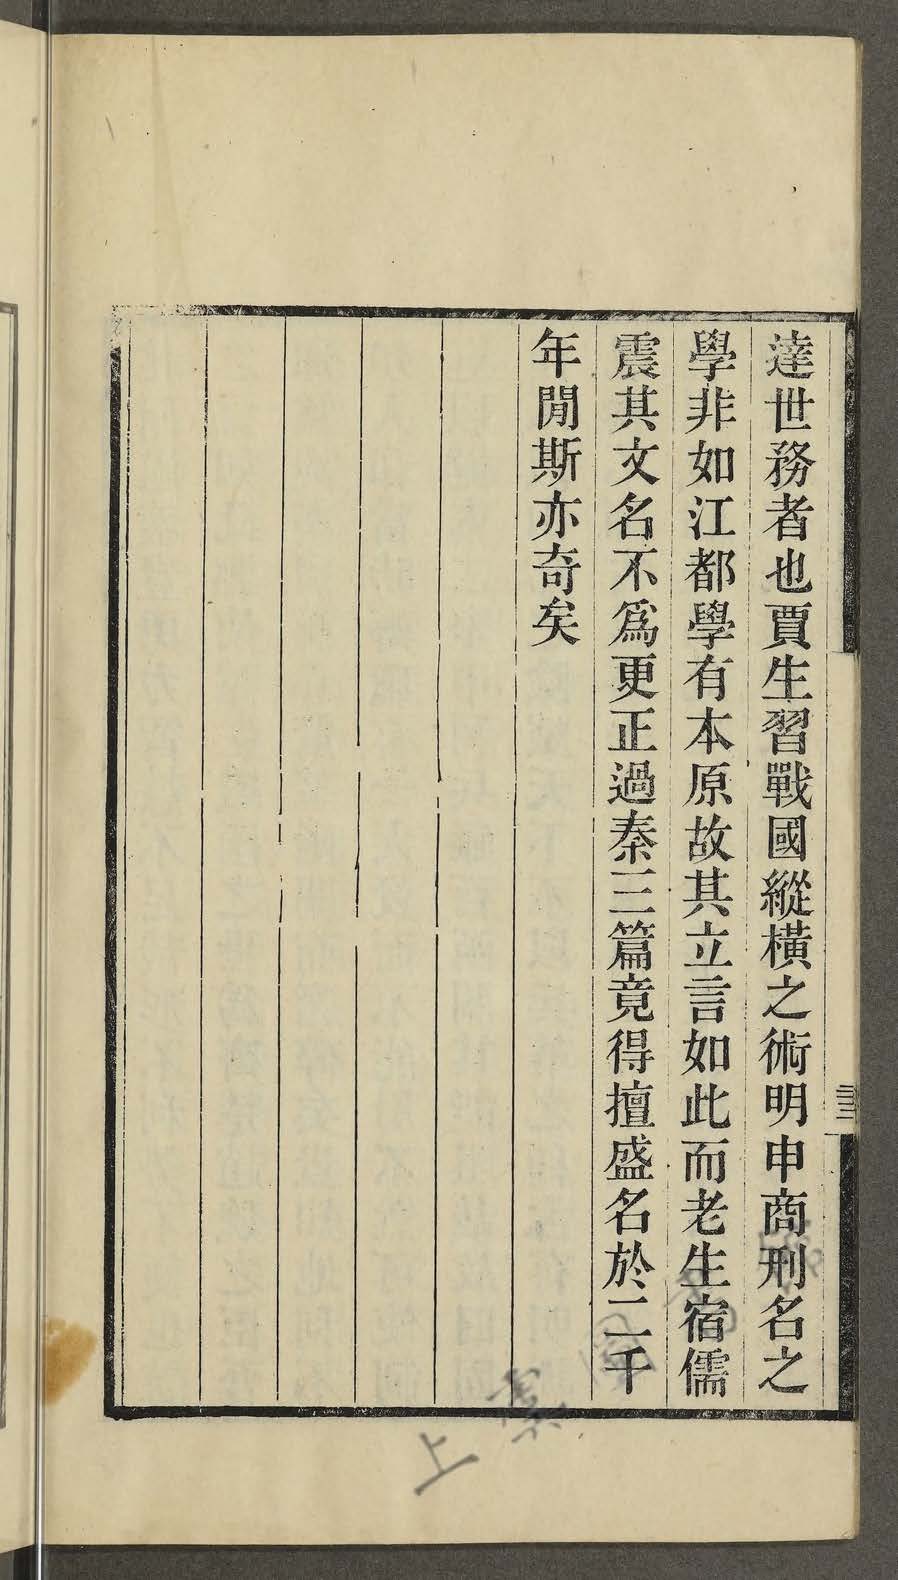 達世務者也賈生習戰國縱橫之術明申商刑名之
學非如江都學有本原故其立言如此而老生宿儒
震其文名不爲更正過秦三篇竟得擅盛名於二千
年閒斯亦奇矣
上